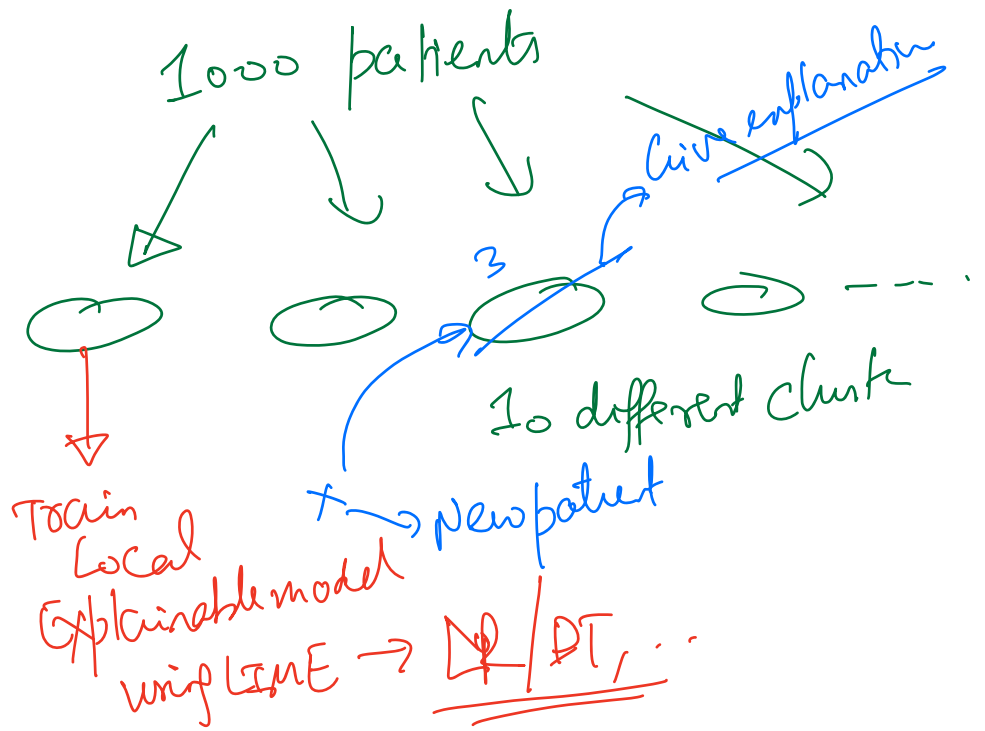 1000 patients
Give explanation
3
10 different clust
x → New patient
Train
Local
Explainable model
using LIME → LR / DT, ...